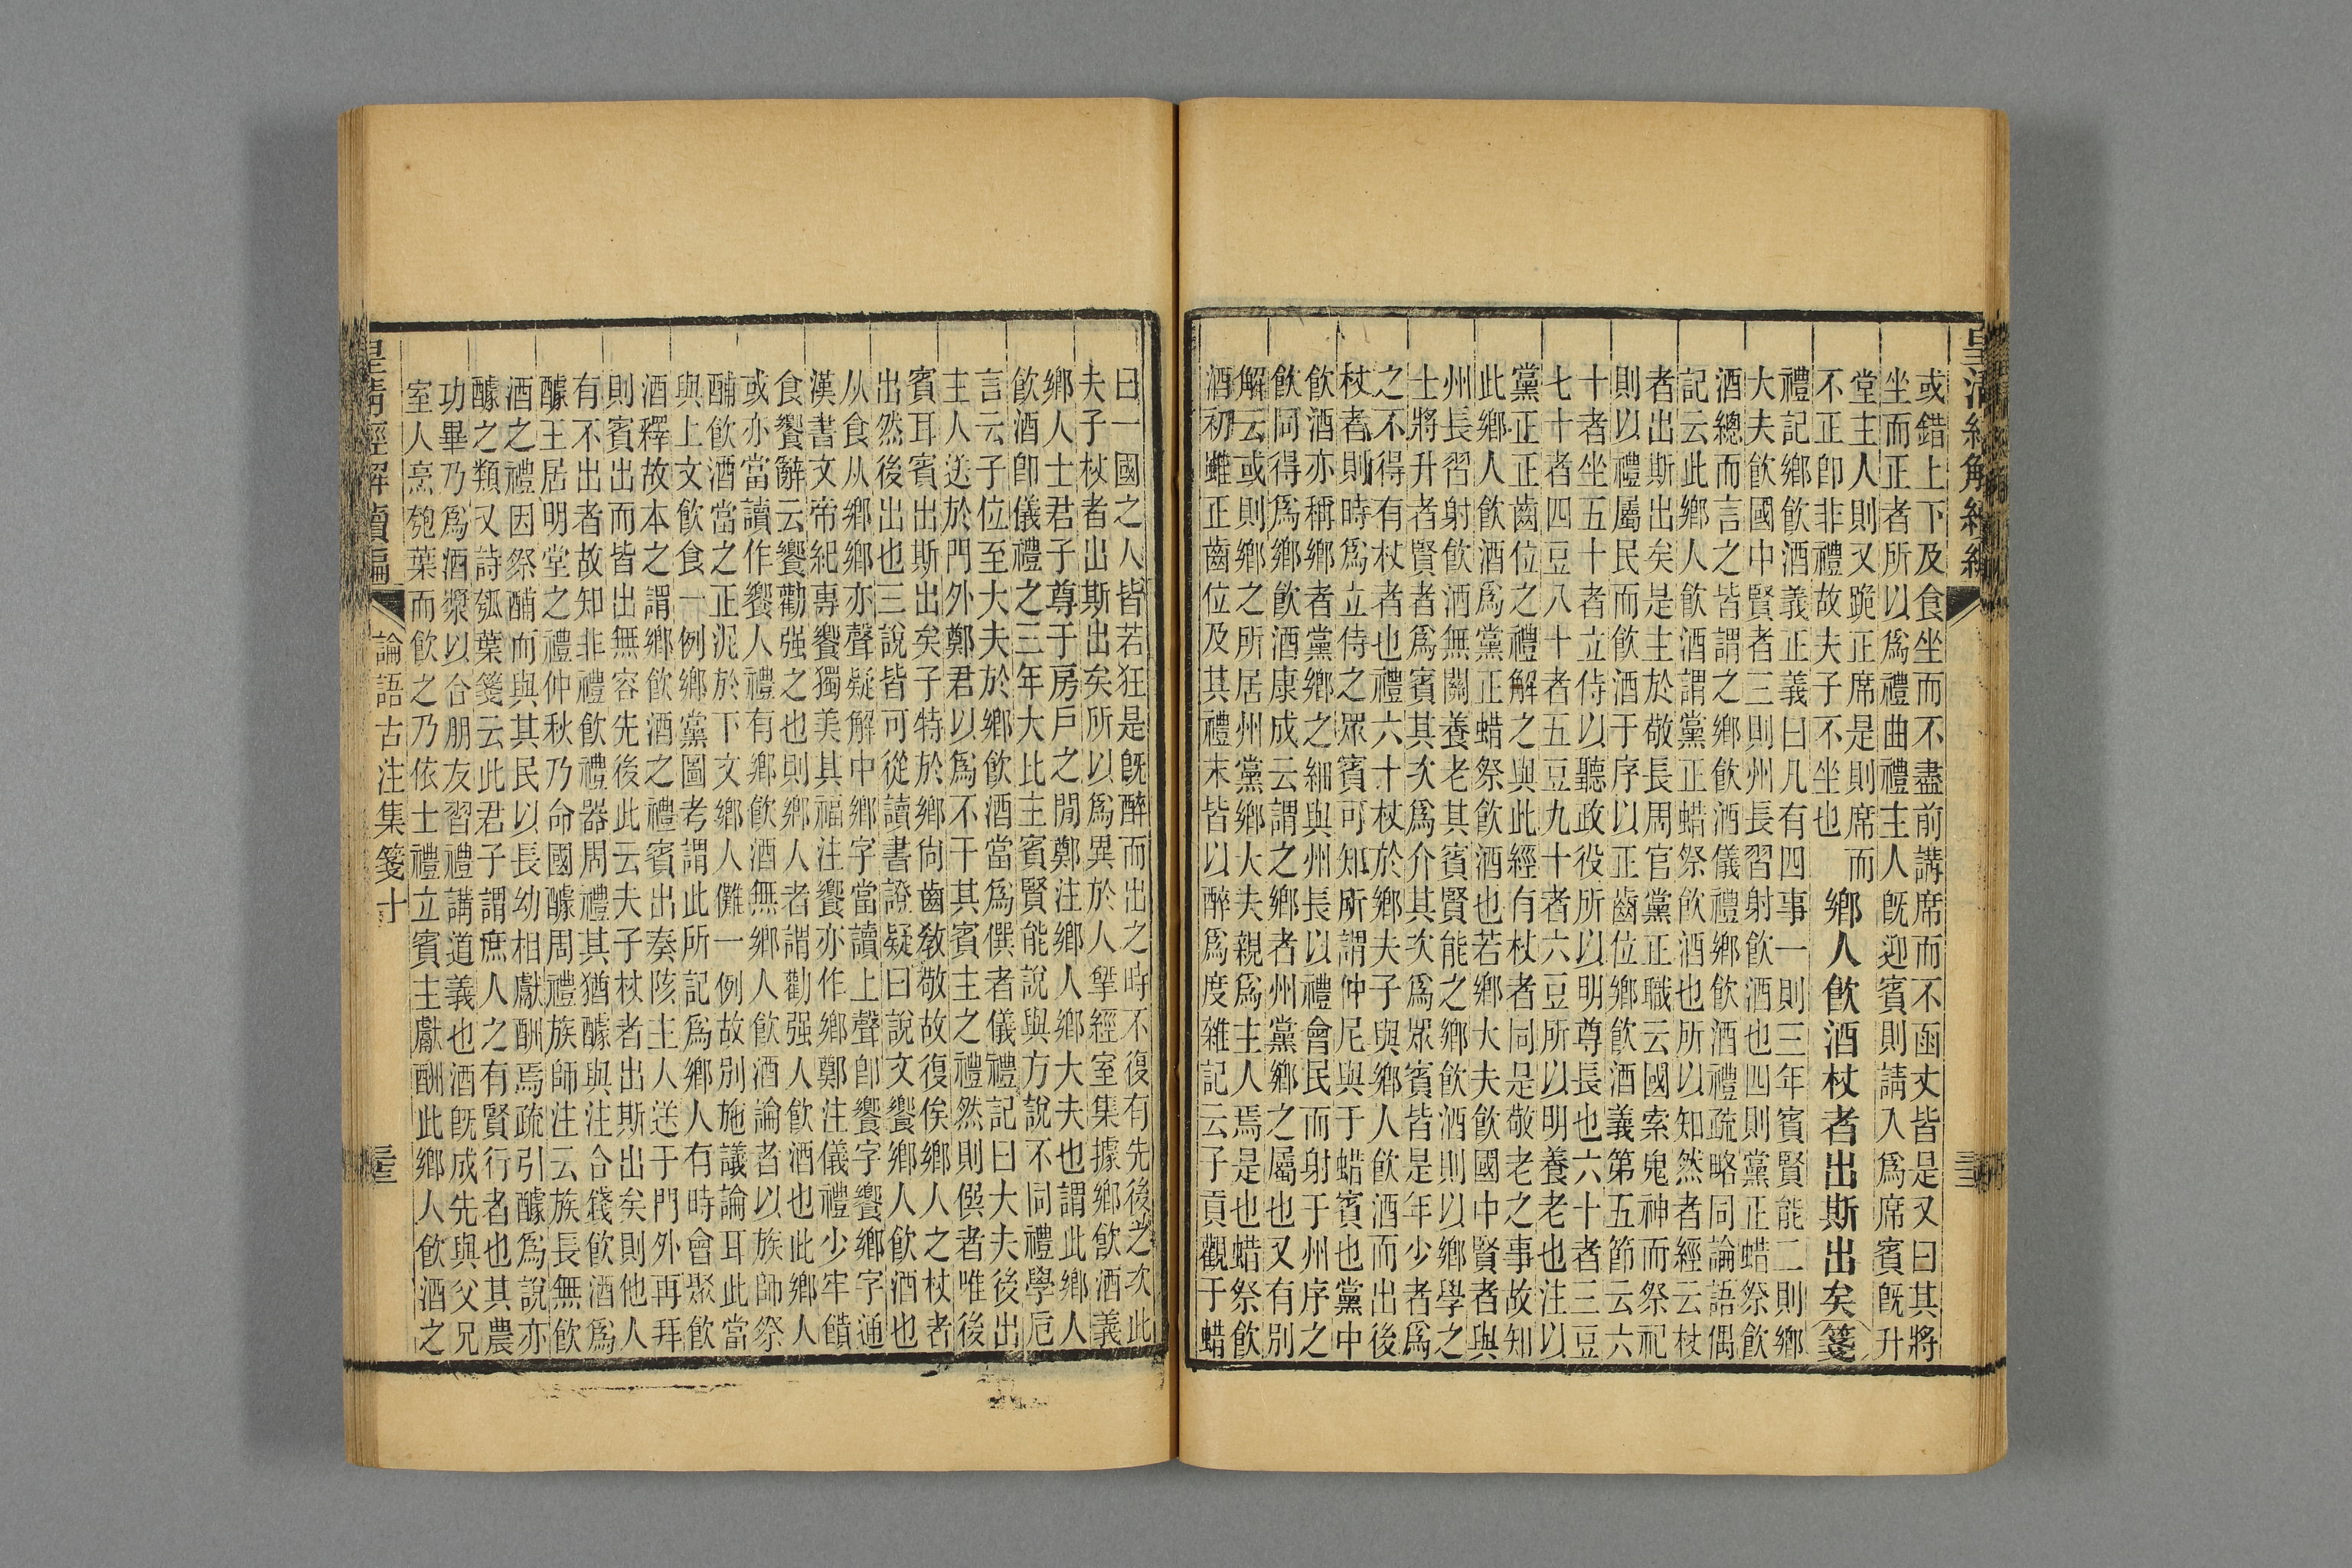 皇清經解續編
或錯上下及食坐而不盡前講席而不函丈皆是又曰其將
坐而正者所以爲禮曲禮主人旣迎賓則請入爲席賓旣升
堂主人則又跪正席是則席而
不正卽非禮故夫子不坐也
鄉人飲酒杖者出斯出矣箋
禮記鄉飲酒義正義曰凡有四事一則三年賓賢能二則鄉
大夫飲國中賢者三則州長習射飲酒也四則黨正蜡祭飲
酒總而言之皆謂之鄉飲酒儀禮鄉飲酒禮疏略同論語偶
記云此鄉人飲酒謂黨正蜡祭飲酒也所以知然者經云杖
者出斯出矣是主於敬長周官黨正職云國索鬼神而祭祀
則以禮屬民而飲酒于序以正齒位鄉飲酒義第五節云六
十者坐五十者立侍以聽政役所以明尊長也六十者三豆
七十者四豆八十者五豆九十者六豆所以明養老也注以
黨正正齒位之禮解之與此經有杖者同是敬老之事故知
此鄉人飲酒爲黨正蜡祭飲酒也若鄉大夫飲國中賢者與
州長習射飲酒無關養老其賓賢能之鄉飲酒則以鄉學之
士將升者賢者爲賓其次爲介其次爲眾賓皆是年少者爲
之不得有杖者也禮六十杖於鄉夫子與鄉人飲酒而出後
杖者則時爲立侍之眾賓可知所謂仲尼與于蜡賓也黨中
飲酒亦稱鄉者黨鄉之細與州長以禮會民而射于州序之
飲同得爲鄉飲酒康成云謂之鄉者州黨鄉之屬也又有別
解云或則鄉之所居州黨鄉大夫親爲主人焉是也蜡祭飲
酒初雖正齒位及其禮末皆以醉爲度雜記云子貢觀于蜡
曰一國之人皆若狂是旣醉而出之時不復有先後之次此
夫子杖者出斯出矣所以爲異於人揅經室集據鄉飲酒義
鄉人士君子尊于房戶之閒鄭注鄉人鄉大夫也謂此鄉人
飲酒卽儀禮之三年大比主賓賢能說與方說不同禮學卮
言云子位至大夫於鄉飲酒當爲僎者儀禮記曰大夫後出
主人送於門外鄭君以爲不干其賓主之禮然則僎者唯後
賓耳賓出斯出矣子特於鄉尙齒敎敬故復俟鄉人之杖者
出然後出也三說皆可從讀書證疑曰說文饗鄉人飲酒也
从食从鄉鄉亦聲疑解中鄉字當讀上聲卽饗字饗鄉字通
漢書文帝紀專饗獨美其福注饗亦作鄉鄭注儀禮少牢饋
食饗辭云饗勸强之也則鄉人者謂勸强人飲酒也此鄉人
或亦當讀作饗人禮有鄉飲酒無鄉人飲酒論者以族師祭
酺飲酒當之正泥於下文鄉人儺一例故別施議論耳此當
與上文飲食一例鄉黨圖考謂此所記爲鄉人有時會聚飲
酒釋故本之謂鄉飲酒之禮賓出奏陔主人送于門外再拜
則賓出而皆出無容先後此云夫子杖者出斯出矣則他人
有不出者故知非禮飲禮器周禮其猶醵與注合錢飲酒爲
醵王居明堂之禮仲秋乃命國醵周禮族師注云族長無飲
酒之禮因祭酺而與其民以長幼相獻酬焉疏引醵爲說亦
醵之類又詩瓠葉箋云此君子謂庶人之有賢行者也其農
功畢乃爲酒漿以合朋友習禮講道義也酒旣成先與父兄
室人烹匏葉而飲之乃依士禮立賓主獻酬此鄉人飲酒之
皇清經解續編
論語古注集箋十